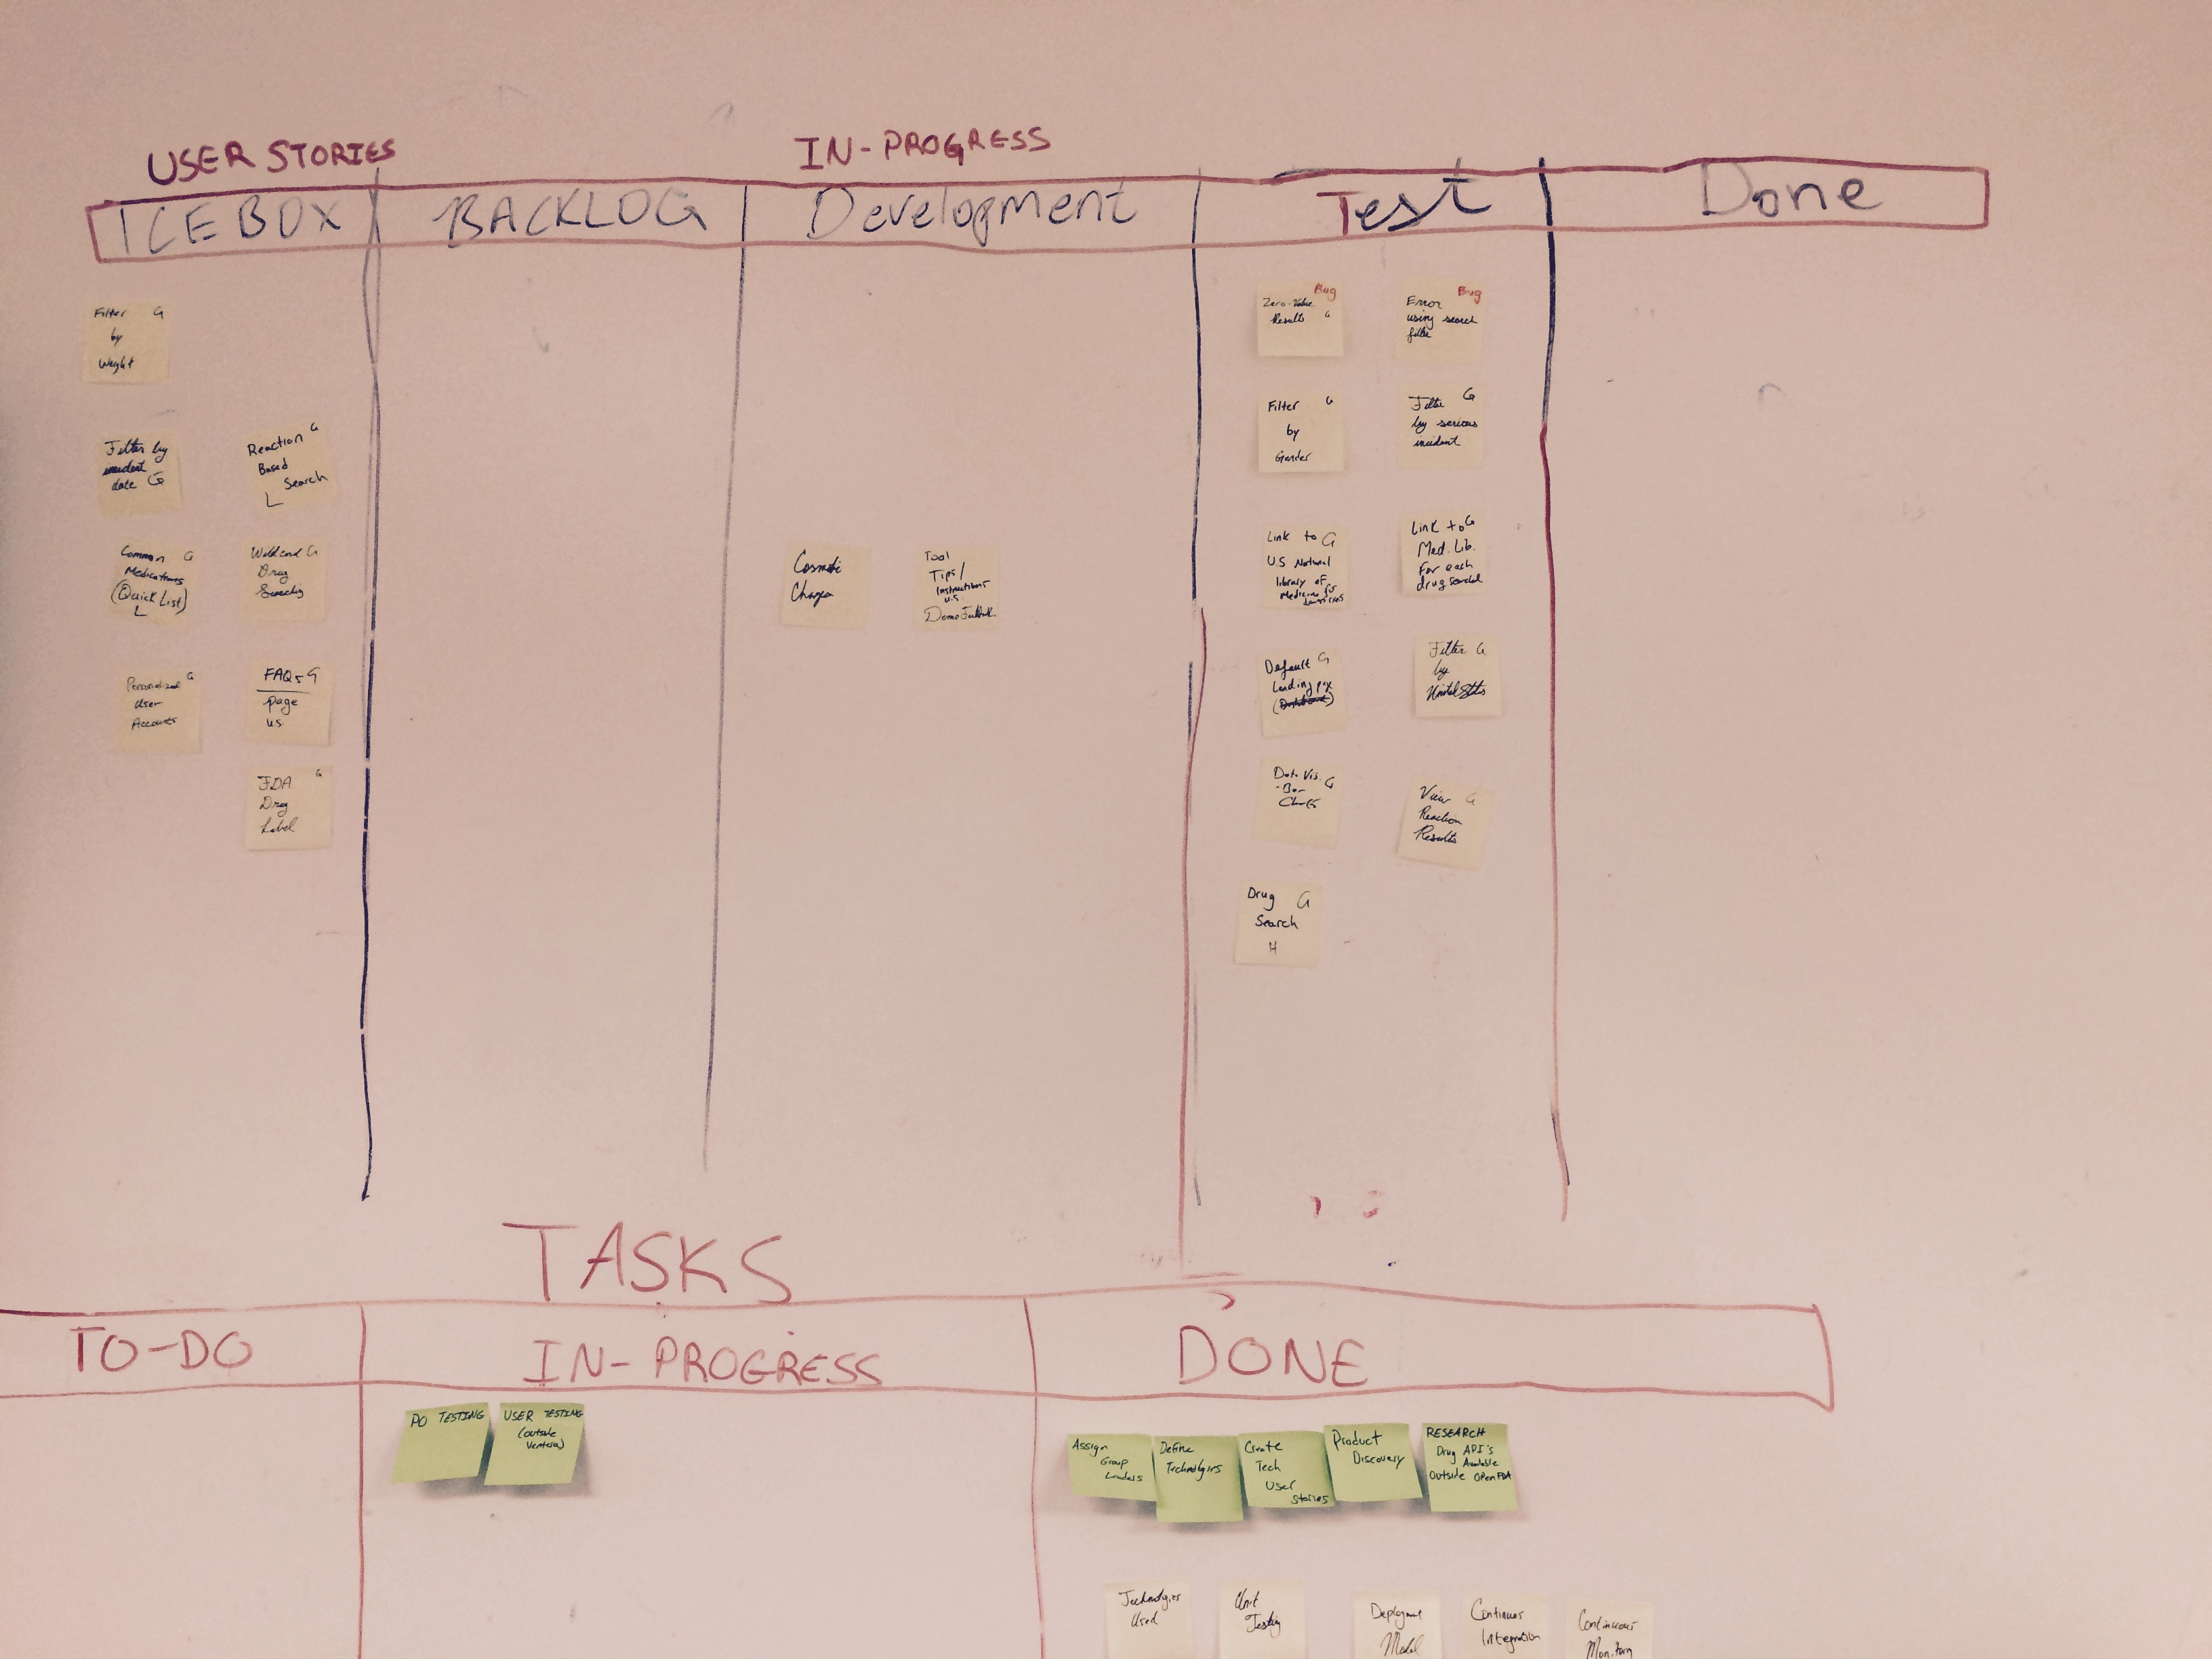 USER STORIES
IN-PROGRESS
ICEBOX
BACKLOG
Development
Test
Done
Filter G
by
Weight
Filter by
incident
date G
Reaction G
Based
Search
L
Common G
Medications
(Quick List)
L
Wildcard G
Drug
Personalized G
User
Accounts
FAQs G
page
US
FDA G
Drug
Label
Cosmetic
Tool
Tips/
Instructions
U.S.
Bug
Zero-Value
Results G
Bug
Error
using search
filter
Filter G
by
Gender
Filter G
by serious
incident
Link to G
U.S National
library of
Medicine for
Link to G
Med. Lib.
for each
drug searched
Default G
Landing page
(Dashboard)
Filter G
by
United States
Data Vis. G
-Bar
Charts
View G
Reaction
Results
Drug G
Search
H
TASKS
TO-DO
IN-PROGRESS
DONE
PO TESTING
USER TESTING
(outside
Ventera)
Assign
Group
Leaders
Define
Technologies
Create
Tech
User
Stories
Product
Discovery
RESEARCH
Drug API's
Available
Outside OpenFDA
Technologies
Used
Unit
Testing
Deployment
Model
Continuous
Integration
Continuous
Monitoring